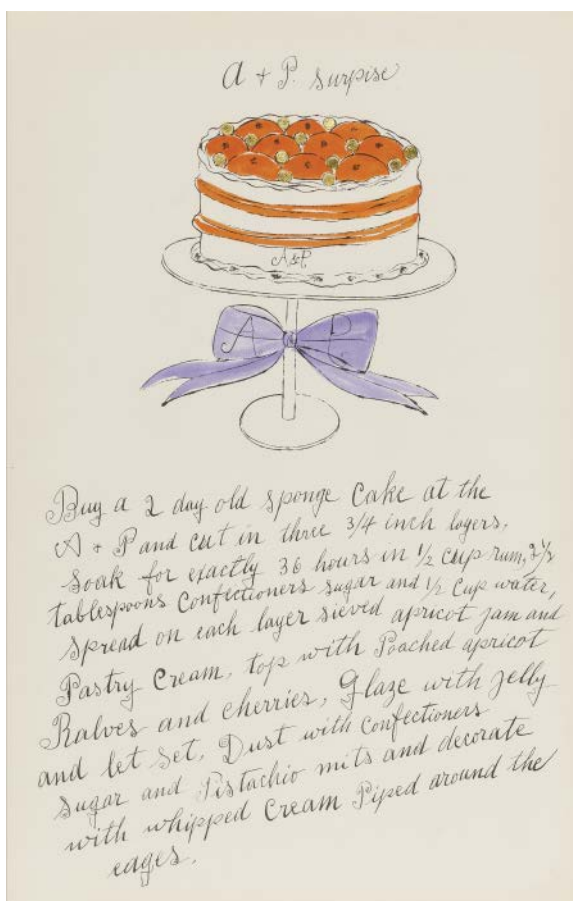 A + P. Surpise
A & P
A P
Buy a 2 day old sponge Cake at the
A + P and cut in three 3/4 inch layers,
Soak for exactly 36 hours in 1/2 cup rum, 2 1/2
tablespoons Confectioners sugar and 1/2 Cup water,
Spread on each layer sieved apricot jam and
Pastry Cream, top with Poached apricot
Halves and cherries, Glaze with jelly
and let set, Dust with Confectioners
Sugar and Pistachio nuts and decorate
with whipped Cream Piped around the
edges.